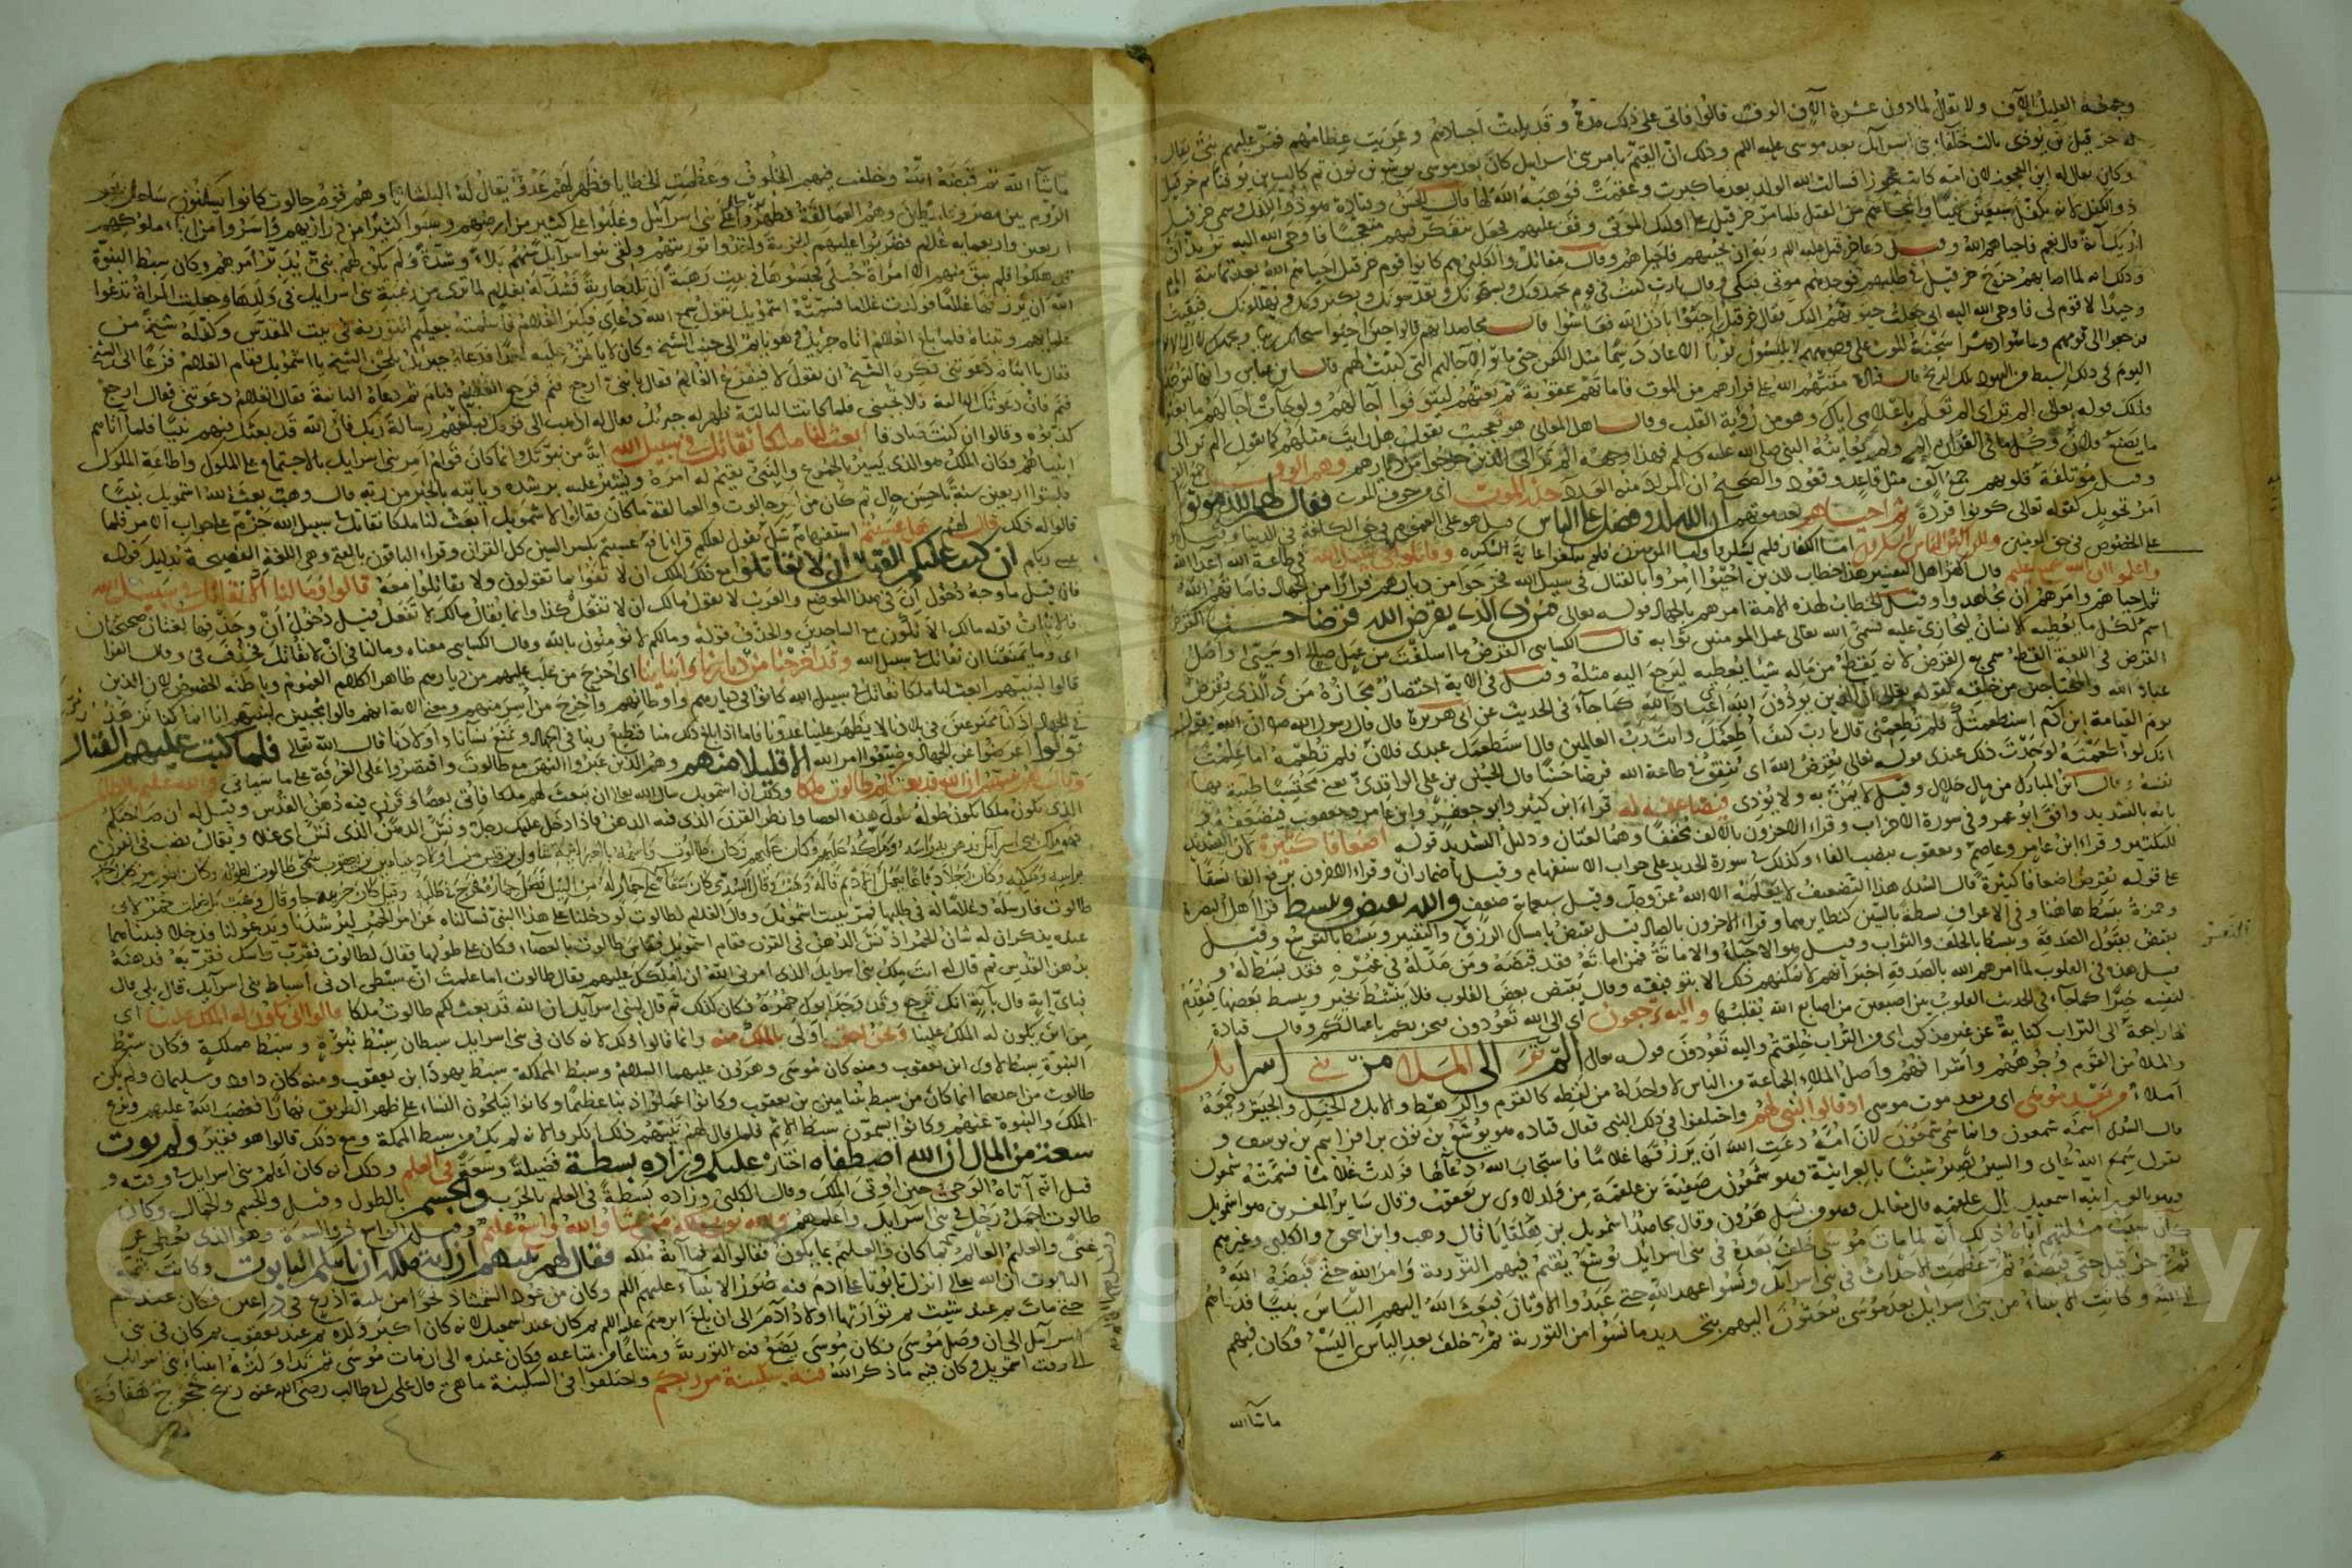 وجمعه القليل آلاف ولا يقال لما دون عشرة آلاف الوف قالوا فاتى على ذلك مدة وقد بليت اجسادهم وعريت عظامهم فمر عليهم نبي يقال
له حزقيل بن بوذى ثالث خلفاء بني اسرآيل بعد موسى عليه السلم وذلك ان القيم بامر بني اسرايل كان بعد موسى يوشع بن نون ثم كالب بن يوقنا ثم حزقيل
وكان يقال له ابن العجوز لان امه كانت عجوزا فسالت الله الولد بعد ما كبرت وعقمت فوهبه الله لها قال الحسن ومقاتل هو ذو الكفل وسمي حزقيل
ذو الكفل لانه تكفل سبعين نبيا وانجاهم من القتل فلما مر حزقيل على اولئك الموتى وقف عليهم فجعل يتفكر فيهم متعجبا فاوحى الله اليه تريد ان
اريك آية قال نعم فاحياهم الله وقيل دعا حزقيل عليه السلم ربه ان يحييهم فاحياهم وقال مقاتل والكلبي هم كانوا قوم حزقيل احياهم الله بعد ثمانية ايام
وذلك انه لما اصابهم خرج حزقيل في طلبهم فوجدهم موتى فبكى وقال يا رب كنت في قوم يحمدونك ويسبحونك ويقدسونك ويكبرونك ويهللونك فبقيت
وحيدا لا قوم لي فاوحى الله اليه اني جعلت حيوتهم اليك فقال حزقيل احيوا باذن الله فعاشوا قال مجاهد انهم قالوا حين احيوا سبحانك ربنا وبحمدك لا اله الا انت
فرجعوا الى قومهم وعاشوا دهرا سحنة الموت على وجوههم لا يلبسون ثوبا الا عاد دسما مثل الكفن حتى ماتوا لآجالهم التي كتبت لهم قال ابن عباس وانها لتوجد
اليوم في ذلك السبط من اليهود تلك الريح قال قتادة مقتهم الله على فرارهم من الموت فاماتهم عقوبة ثم بعثهم ليتوفوا آجالهم ولو جاءت آجالهم ما بعثوا
فذلك قوله تعالى الم تر اي الم تعلم باعلامي اياك وهو من رؤية القلب وقال اهل المعاني هو تعجيب يقول هل رايت مثلهم كما يقول الم تر الى
ما يصنع فلان وكل ما في القران الم تر ولم يعاينه النبي صلى الله عليه وسلم فهذا وجهه الم تر الى الذين خرجوا من ديارهم وهم الوف
وقيل مؤتلفة قلوبهم جمع آلف مثل قاعد وقعود والصحيح ان المراد منه العدد حذر الموت اي من خوف الموت فقال لهم الله موتوا
امر تحويل كقوله تعالى كونوا قردة ثم احياهم بعد موتهم ان الله لذو فضل على الناس قيل هو على العموم في حق الكافة في الدنيا وقيل
على الخصوص في حق المومنين ولكن اكثر الناس لا يشكرون اما الكفار فلم يشكروا واما المومنون فلم يبلغوا غاية الشكر وقاتلوا في سبيل الله في طاعة الله اعداء الله
واعلموا ان الله سميع عليم قال اكثر اهل التفسير هذا خطاب للذين احيوا امروا بالقتال في سبيل الله فخرجوا من ديارهم فرارا من الجهاد فاماتهم الله
ثم احياهم وامرهم ان يجاهدوا وقيل الخطاب لهذه الامة امرهم بالجهاد قوله تعالى من ذا الذي يقرض الله قرضا حسنا القرض
اسم لكل ما يعطيه الانسان ليجازى عليه فسمى الله تعالى عمل المومنين ثوابه قال الكسائي القرض ما اسلفت من عمل صالح او سيئ واصل
القرض في اللغة القطع سمي به القرض لانه يقطع من ماله شيا يعطيه ليرجع اليه مثله وقيل في الاية اختصار مجازه من ذا الذي يقرض
عباد الله والمحتاجين من خلقه كقوله تعالى ان الذين يوذون الله اي عباد الله كما جاء في الحديث عن ابي هريرة قال قال رسول الله صلعم ان الله يقول
يوم القيامة ابن آدم استطعمتك فلم تطعمني قال يا رب كيف اطعمك وانت رب العالمين قال استطعمك عبدي فلان فلم تطعمه اما علمت
انك لو اطعمته لوجدت ذلك عندي قوله تعالى يقرض الله اي ينفق في طاعة الله قرضا حسنا قال الحسين بن علي الواقدي يعني محتسبا طيبة بها
نفسه وقال ابن المبارك من مال حلال وقيل لا يمن به ولا يؤذي فيضاعفه له قراءة ابن كثير وابو جعفر وابن عامر ويعقوب فيضعفه
بابه بالتشديد وافق ابو عمرو في سورة الاحزاب وقراء الاخرون بالالف مخففا وهما لغتان ودليل التشديد قوله اضعافا كثيرة لان التشديد
للتكثير وقراء ابن عامر وعاصم ويعقوب بنصب الفاء وكذلك في سورة الحديد على جواب الاستفهام وقيل باضمار ان وقراء الاخرون برفع الفاء نسقا
على قوله يقرض اضعافا كثيرة قال السدي هذا التضعيف لا يعلمه الا الله عز وجل وقيل سبعماية ضعف والله يقبض ويبسط قرا اهل البصرة
وحمزة يبسط هاهنا وفي الاعراف بسطة بالسين كنظايرهما وقراء الاخرون بالصاد قيل يقبض بامساك الرزق والتقتير ويبسط بالتوسع وقيل
يقبض بقبول الصدقة ويبسط بالخلف والثواب وقيل هو الاحياء والاماتة فمن اماته فقد قبضه ومن مد له في عمره فقد بسط له و
قيل هذا في القلوب لما امرهم الله بالصدقة اخبر انهم لا يمكنهم ذلك الا بتوفيقه وقال يقبض بعض القلوب فلا ينشط بخير ويبسط بعضها فيقدم
لنفسه خيرا كما جاء في الحديث القلوب بين اصبعين من اصابع الله يقلبها واليه ترجعون اي الى الله تعودون فيجزيكم باعمالكم وقال قتادة
الها راجعة الى التراب كناية عن غير مذكور اي من التراب خلقتم واليه تعودون قوله تعالى الم تر الى الملا من بني اسرايل
والملا من القوم وجوههم واشرافهم واصل الملا الجماعة من الناس لا واحد له من لفظه كالقوم والرهط والابل والخيل والجيش وجمعه
املاء من بعد موسى اي من بعد موت موسى اذ قالوا لنبي لهم واختلفوا في ذلك النبي فقال قتادة هو يوشع بن نون بن افرائيم بن يوسف و
قال السدي اسمه شمعون وانما سمي شمعون لان امه دعت الله ان يرزقها غلاما فاستجاب الله دعآها فولدت غلاما فسمته شمعون
تقول سمع الله دعاي والسين تصير شينا بالعبرانية وهو شمعون بن صفية بن علقمة من ولد لاوي بن يعقوب وقال ساير المفسرين هو اشمويل
وهو بالعبرانية اسمعيل بن هلقايا قال مقاتل وهو من نسل هرون وقال مجاهد اشمويل بن هلقايا قال وهب وابن اسحق والكلبي وغيرهم
كان سبب مسئلتهم اياه ذلك انه لما مات موسى خلف بعده في بني اسرايل يوشع يقيم فيهم التورية وامر الله حتى قبضه الله
ثم حزقيل حتى قبضه ثم عظمت الاحداث في بني اسرآيل ونسوا عهد الله حتى عبدوا الاوثان فبعث الله اليهم الياس نبيا فدعاهم
الى الله وكانت الانبياء من بني اسرايل بعد موسى يبعثون اليهم بتجديد ما نسوا من التورية ثم خلف بعد الياس اليسع فكان فيهم
ماشآ الله
ماشآ الله ثم قبضه الله وخلف فيهم الخلوف وعظمت الخطايا فظهر لهم عدو يقال له البلشاثا وهم قوم جالوت كانوا يسكنون ساحل بحر
الروم بين مصر وفلسطين وهم العمالقة فظهروا على بني اسرآئيل وغلبوا على كثير من ارضهم وسبوا كثيرا من ذراريهم واسروا من ابناء ملوكهم
اربعين واربعماية غلام فضربوا عليهم الجزية واخذوا توريتهم ولقي بنوا اسرآيل منهم بلاء وشدة ولم يكن لهم نبي يدبر امرهم وكان سبط النبوة
قد هلكوا فلم يبق منهم الا امراة حبلى فحبسوها في بيت رهبة ان تلد جارية فتبدله بغلام لما ترى من رغبة بني اسرايل في ولدها وجعلت المراة تدعوا
الله ان يرزقها غلاما فولدت غلاما فسمته اشمويل تقول سمع الله دعاي فكبر الغلام فاسلمته بتعليم التورية في بيت المقدس وكفله شيخ من
علمائهم وتبناه فلما بلغ الغلام اتاه جبريل وهو نائم الى جنب الشيخ وكان لا يامن عليه احدا فدعاه جبريل بلحن الشيخ يا اشمويل فقام الغلام فزعا الى الشيخ
فقال يا ابتاه دعوتني فكره الشيخ ان يقول لا فيفزع الغلام فقال يا بني ارجع فنم فرجع الغلام فنام ثم دعاه الثانية فقال الغلام دعوتني فقال ارجع
فنم فان دعوتك الثالثة فلا تجبني فلما كانت الثالثة ظهر له جبريل فقال له اذهب الى قومك فبلغهم رسالة ربك فان الله قد بعثك فيهم نبيا فلما اتاهم
كذبوه وقالوا ان كنت صادقا ابعث لنا ملكا نقاتل في سبيل الله آية من نبوتك وانما كان قوام امر بني اسرايل بالاجتماع على الملوك واطاعة الملوك
انبياءهم فكان الملك هو الذي يسير بالجموع والنبي يقيم له امره ويشير عليه برشده وياتيه بالخبر من ربه قال وهب بعث الله اشمويل نبيا
فلبثوا اربعين سنة باحسن حال ثم كان من امر جالوت والعمالقة ما كان فقالوا لاشمويل ابعث لنا ملكا نقاتل في سبيل الله جزم على جواب الامر فلما
قالوا له ذلك قال لهم هل عسيتم استفهام شك يقول لعلكم قرا نافع عسيتم بكسر السين كل القران وقراء الباقون بالفتح وهي اللغة الفصيحة بدليل قوله
عسى ربكم ان كتب عليكم القتال ان لا تقاتلوا مع ذلك الملك ان لا تفوا بما تقولون ولا تقاتلوا معه قالوا وما لنا الا نقاتل في سبيل الله
فان قيل ما وجه دخول ان في هذا الموضع والعرب لا تقول مالك ان لا تفعل كذا وانما يقال مالك لا تفعل قيل دخول ان وحذفها لغتان صحيحتان
فالاثبات قوله مالك الا تكون مع الساجدين والحذف قوله ومالكم لا تؤمنون بالله وقال الكسائي معناه ومالنا في ان لا نقاتل فحذف في وقال الفرا
اي وما يمنعنا ان نقاتل في سبيل الله وقد اخرجنا من ديارنا وابنائنا اي اخرج من غلب عليهم من ديارهم ظاهر الكلام العموم وباطنه الخصوص لان الذين
قالوا لنبيهم ابعث لنا ملكا نقاتل في سبيل الله كانوا في ديارهم واوطانهم واخرج من اسر منهم ومعنى الاية انهم قالوا مجيبين لنبيهم انا انما كنا نزهد
في الجهاد اذ كنا ممنوعين في بلادنا لا يظهر علينا عدونا فاما اذ بلغ ذلك منا فنطيع ربنا في الجهاد ونمنع نساءنا واولادنا قال الله تعالى فلما كتب عليهم القتال
تولوا اعرضوا عن الجهاد وضيعوا امر الله الا قليلا منهم وهم الذين عبروا النهر مع طالوت واقتصروا على الغرفة على ما سياتي والله عليم بالظالمين
وقال لهم نبيهم ان الله قد بعث لكم طالوت ملكا وذلك ان اشمويل سال الله تعالى ان يبعث لهم ملكا فاتي بعصا وقرن فيه دهن القدس وقيل له ان صاحبكم
الذي يكون ملكا يكون طوله طول هذه العصا وانظر القرن الذي فيه الدهن فاذا دخل عليك رجل ونش الدهن الذي
طالوت فارسله وغلاما له في طلبها فمر ببيت اشمويل وقال الغلام لطالوت لو دخلنا على هذا النبي فسالناه عن امر الحمر ليرشدنا ويدعو لنا فدخلا فبينما هما
عنده يذكران له شان الحمر اذ نش الدهن في القرن فقام اشمويل فقاس طالوت بالعصا وكان على طولها فقال لطالوت قرب راسك فقربه فدهنه
بدهن القدس ثم قال له انت ملك بني اسرايل الذي امرني الله ان املكك عليهم فقال طالوت اما علمت ان سبطي ادنى اسباط بني اسرايل قال بلى قال
فباي آية قال بآية انك ترجع وقد وجد ابوك حمره فكان كذلك ثم قال لبني اسرآيل ان الله قد بعث لكم طالوت ملكا قالوا انى يكون له الملك علينا اي
من اين يكون له الملك علينا ونحن احق اولى بالملك منه وانما قالوا ذلك لانه كان في بني اسرايل سبطان سبط نبوة وسبط مملكة فكان سبط
النبوة سبط لاوي ابن يعقوب ومنه كان موسى وهرون عليهما السلام وسبط المملكة سبط يهوذا ابن يعقوب ومنه كان داود وسليمان ولم يكن
طالوت من احدهما انما كان من سبط بنيامين بن يعقوب وكانوا عملوا ذنبا عظيما وكانوا ينكحون النساء على ظهر الطريق نهارا فغضب الله عليهم ونزع
الملك والنبوة عنهم وكانوا يسمون سبط الاثم فلما قال لهم نبيهم ذلك انكروا لانه لم يكن من سبط المملكة ومع ذلك قالوا هو فقير ولم يؤت
سعة من المال ان الله اصطفاه اختاره عليكم وزاده بسطة فضيلة وسعة في العلم وذلك انه كان اعلم بني اسرايل في وقته و
قيل انه اتاه الوحي حين اوتي الملك وقال الكلبي وزاده بسطة في العلم بالحرب والجسم بالطول وقيل والجسم والجمال وكان
طالوت اجمل رجل في بني اسرآيل واعلمهم والله يؤتي ملكه من يشاء والله واسع عليم وقيل الواسع ذو السعة وهو الذي يعطي عن
غنى والعليم العالم بما كان والعليم بما يكون فقالوا له فما آية ملكه فقال لهم نبيهم ان آية ملكه ان ياتيكم التابوت وكانت قصة
التابوت ان الله تعالى انزل تابوتا على ادم فيه صور الانبيآء عليهم السلم وكان من عود الشمشاذ نحوا من ثلثة اذرع في ذراعين فكان عند ادم
حتى مات ثم عند شيث ثم توارثها اولاد آدم الى ان بلغ ابرهيم عليه السلم ثم كان عند اسمعيل لانه كان اكبر ولده ثم عند يعقوب ثم كان في بني
اسرآيل الى ان وصل موسى فكان موسى يضع فيه التورية ومتاعا من متاعه وكان عنده الى ان مات موسى ثم تداولته انبياء بني اسرايل
الى وقت اشمويل وكان فيه ما ذكر الله فيه سكينة من ربكم واختلفوا في السكينة ما هي قال علي بن ابي طالب رضي الله عنه ريح خجوج هفافة